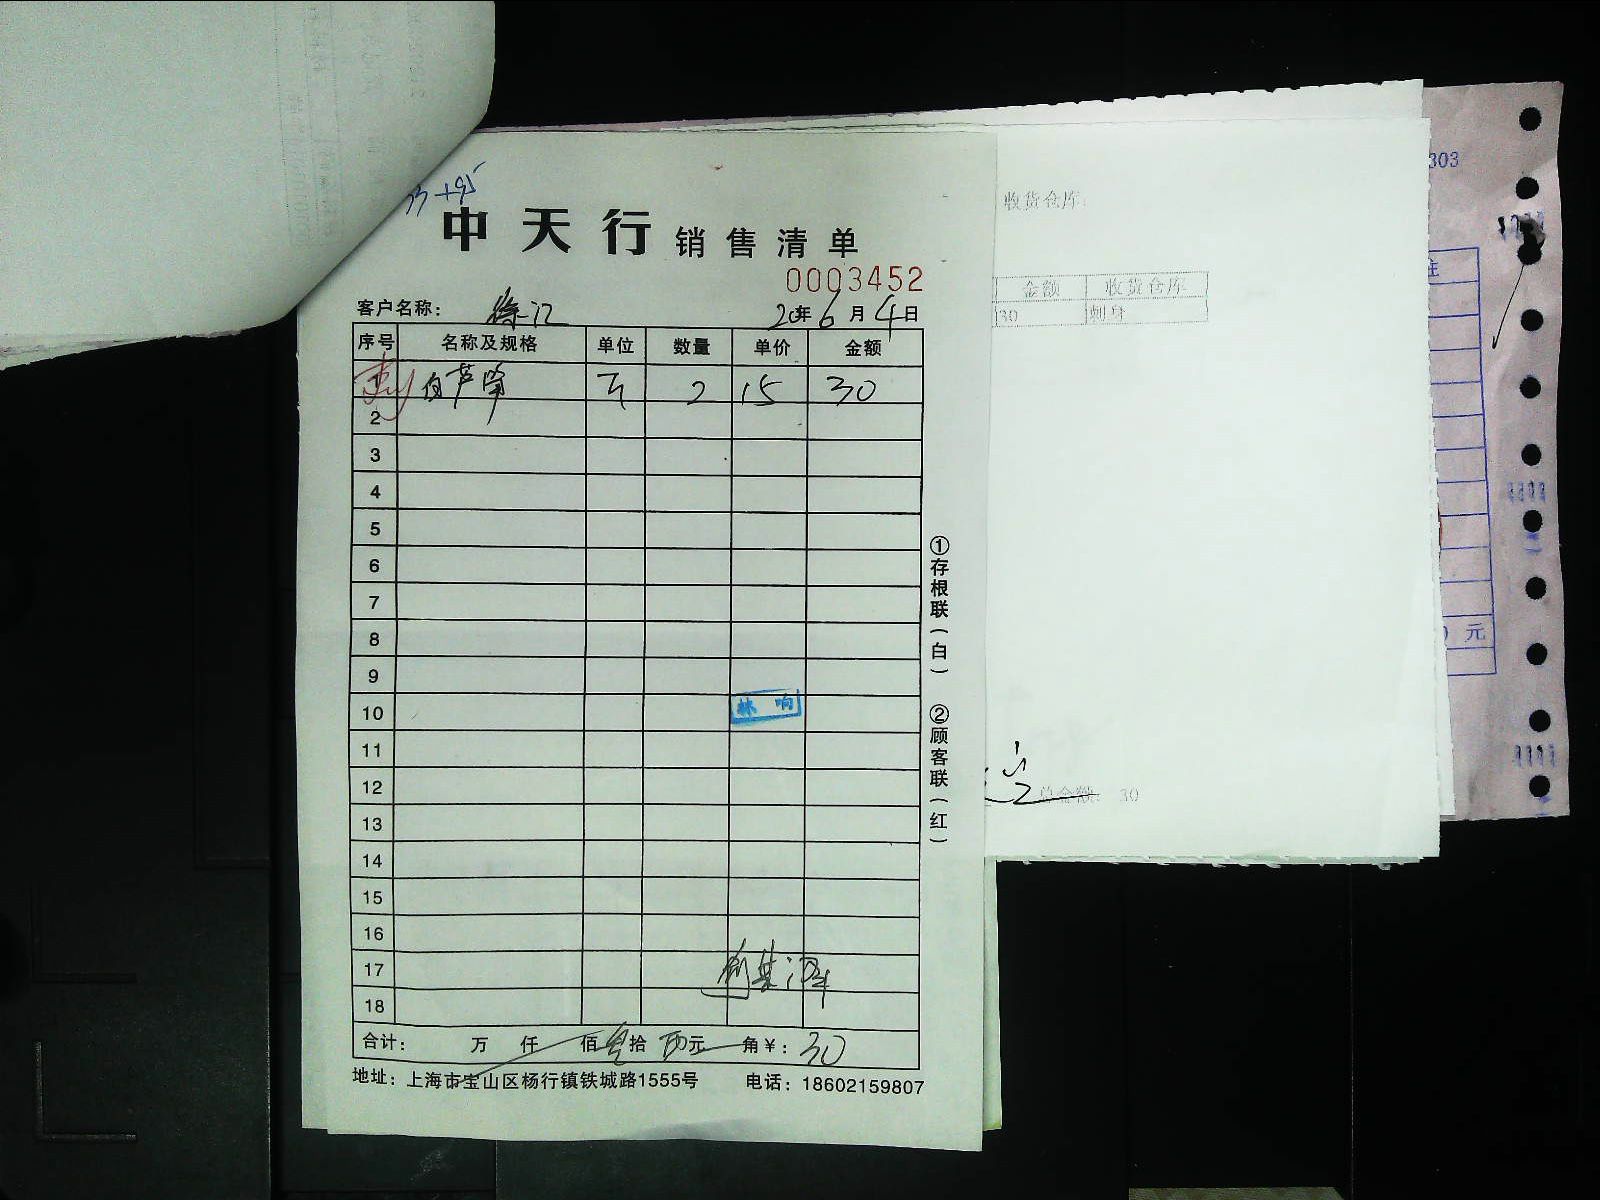 +95
中天行 销售清单
0003452
客户名称： 徐汇 20年6月4日
序号 名称及规格 单位 数量 单价 金额
1 白芦笋 斤 2 15 30
2
3
4
5
6
7
8
9
10 林响
11
12
13
14
15
16
17
18
合计： 万 仟 佰 拾 元 角 ￥：30
地址：上海市宝山区杨行镇铁城路1555号 电话：18602159807
①存根联（白） ②顾客联（红）
收货仓库：
金额 收货仓库
30 刺身
总金额： 30
303
注
元